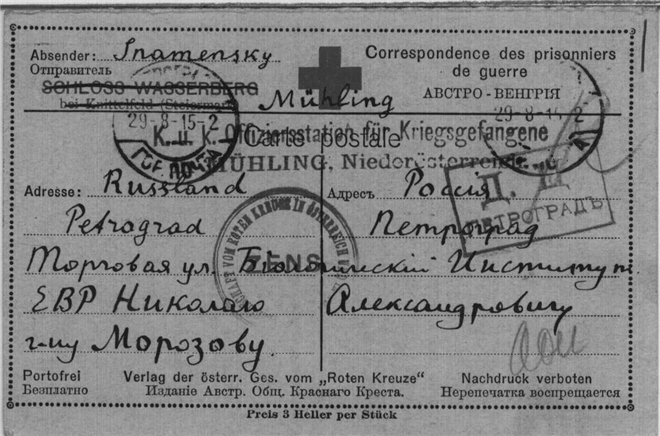 Absender: Snamensky
Отправитель
Correspondence des prisonniers
de guerre
SCHLOSS WASSERBERG
bei Knittelfeld (Steiermark)
АВСТРО-ВЕНГРІЯ
Mühling
29-8-15-2
29-8-
K. u. k. Offiziersstation für Kriegsgefangene
Carte postale
MÜHLING, Niederösterreich
Adresse: Russland
Адресъ Россия
Д. Ц
ПЕТРОГРАДЪ
Petrograd
Петроград
Торговая ул. Биологический Институт.
ZENS
ЕВР Николаю Александровичу
г-ну Морозову.
Portofrei
Безплатно
Verlag der österr. Ges. vom „Roten Kreuze"
Изданіе Австр. Общ. Краснаго Креста.
Nachdruck verboten
Нерепечатка воспрещается
Preis 3 Heller per Stück